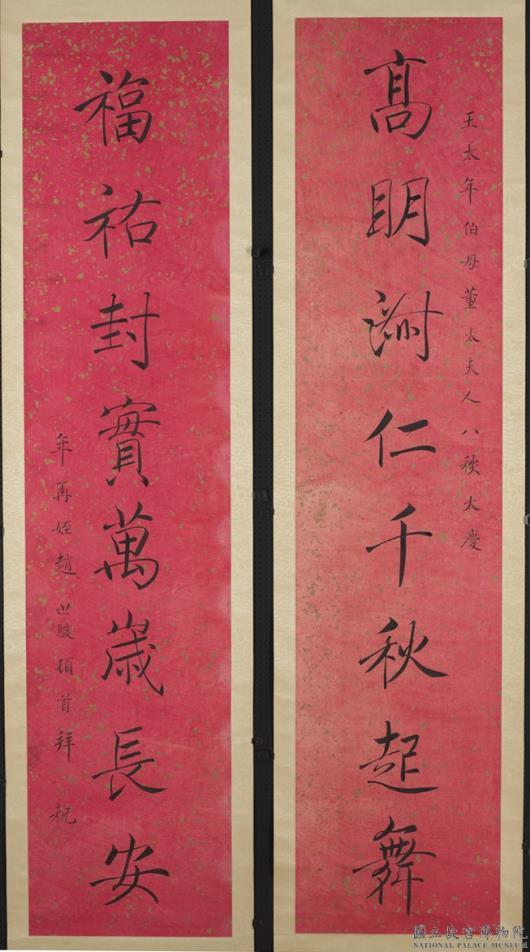 王太年伯母董太夫人八袟大慶
高明澍仁千秋起舞
福祐封實萬歲長安
年再姪趙世駿頓首拜祝
國立故宮博物院
NATIONAL PALACE MUSEUM